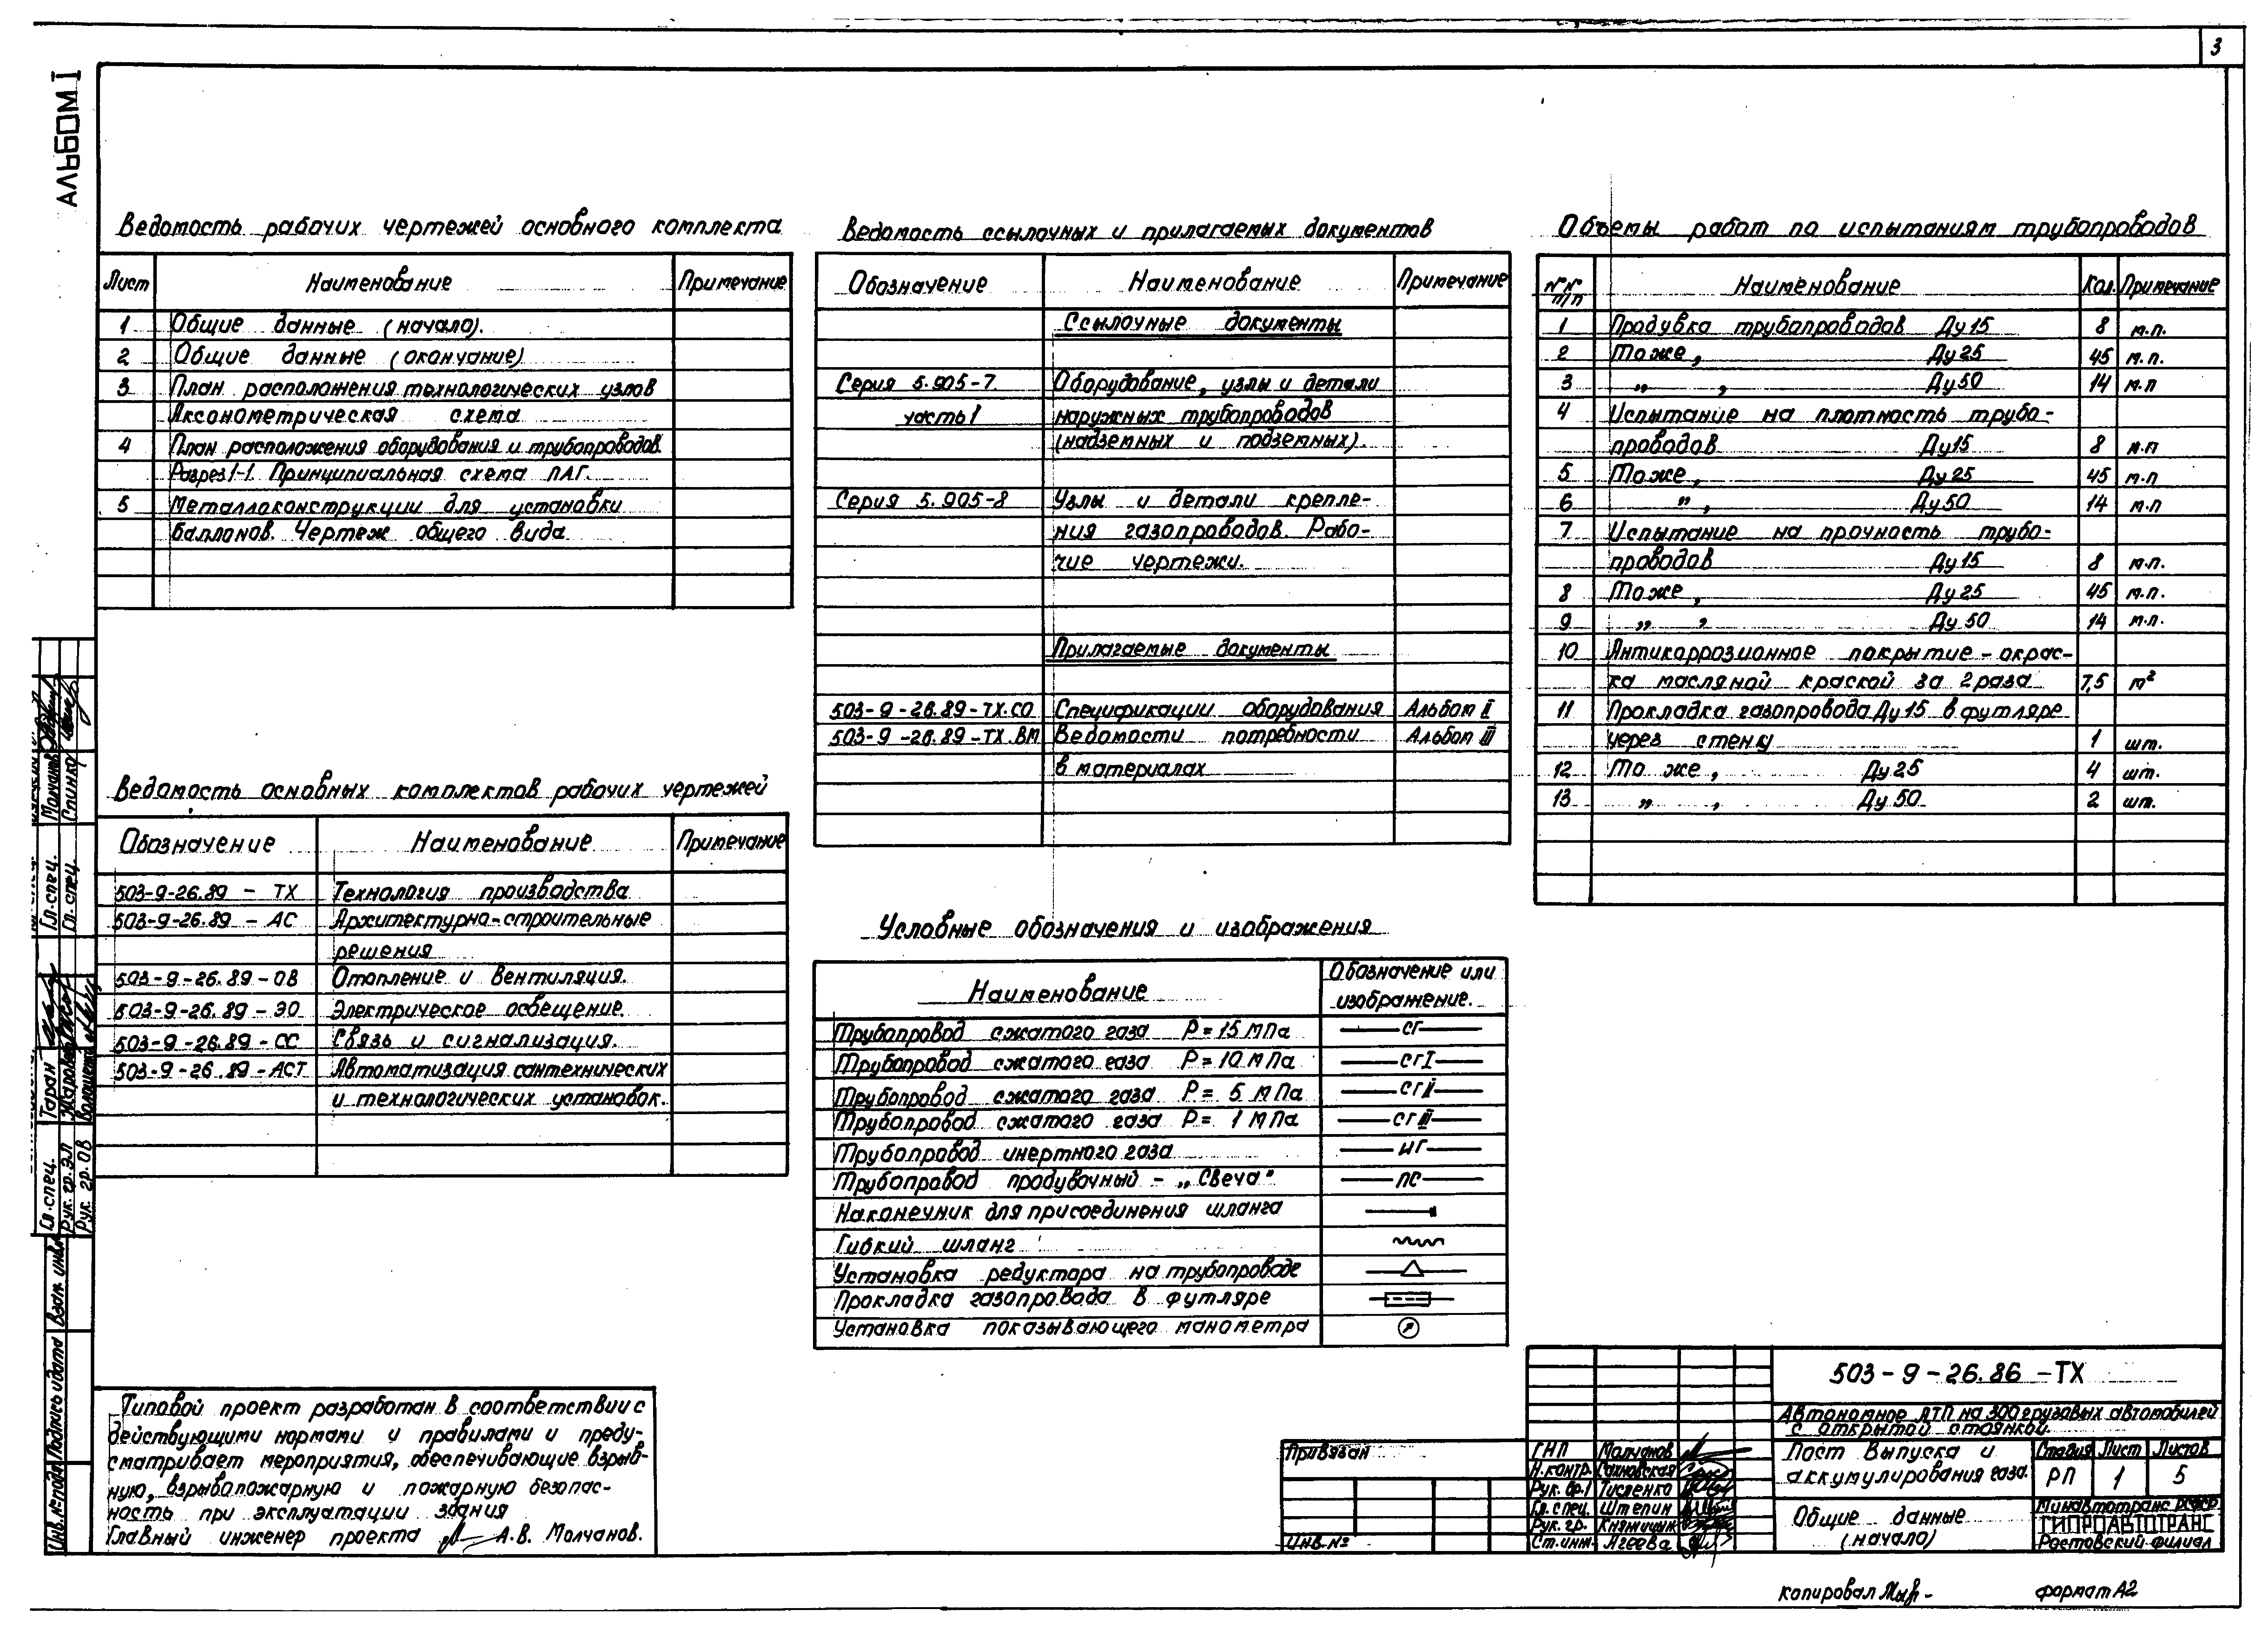 3
АЛЬБОМ I
Ведомость рабочих чертежей основного комплекта
Лист Наименование Примечание
1 Общие данные (начало).
2 Общие данные (окончание)
3 План расположения технологических узлов
Аксонометрическая схема
4 План расположения оборудования и трубопроводов.
Разрез 1-1. Принципиальная схема ПАГ.
5 Металлоконструкции для установки
баллонов. Чертеж общего вида
Ведомость основных комплектов рабочих чертежей
Обозначение Наименование Примечание
503-9-26.89 - ТХ Технология производства
503-9-26.89 - АС Архитектурно-строительные
решения
503-9-26.89-ОВ Отопление и вентиляция.
503-9-26.89 - ЭО Электрическое освещение.
503-9-26.89 - СС Связь и сигнализация.
503-9-26.89-АСТ Автоматизация сантехнических
и технологических установок.
Типовой проект разработан в соответствии с
действующими нормами и правилами и преду-
сматривает мероприятия, обеспечивающие взрыв-
ную, взрывопожарную и пожарную безопас-
ность при эксплуатации здания
Главный инженер проекта А.В. Молчанов.
Ведомость ссылочных и прилагаемых документов
Обозначение Наименование Примечание
Ссылочные документы
Серия 5.905-7. Оборудование, узлы и детали
часть 1 наружных трубопроводов
(надземных и подземных).
Серия 5.905-8 Узлы и детали крепле-
ния газопроводов. Рабо-
чие чертежи.
Прилагаемые документы
503-9-26.89-ТХ.СО Спецификации оборудования Альбом II
503-9-26.89-ТХ.ВМ Ведомости потребности Альбом III
в материалах
Условные обозначения и изображения
Наименование Обозначение или
изображение.
Трубопровод сжатого газа Р = 15 МПа СГ
Трубопровод сжатого газа Р = 10 МПа СГI
Трубопровод сжатого газа Р = 5 МПа СГII
Трубопровод сжатого газа Р = 1 МПа СГIII
Трубопровод инертного газа ИГ
Трубопровод продувочный - „Свеча" ПС
Наконечник для присоединения шланга
Гибкий шланг
Установка редуктора на трубопроводе
Прокладка газопровода в футляре
Установка показывающего манометра
Объемы работ по испытаниям трубопроводов
№№ п/п Наименование Кол. Примечание
1 Продувка трубопроводов Ду 15 8 м.п.
2 То же, Ду 25 45 м.п.
3 „ , Ду 50 14 м.п
4 Испытание на плотность трубо-
проводов Ду 15 8 м.п
5 То же, Ду 25 45 м.п
6 „ , Ду 50 14 м.п
7 Испытание на прочность трубо-
проводов Ду 15 8 м.п.
8 То же, Ду 25 45 м.п.
9 „ , Ду 50 14 м.п.
10 Антикоррозионное покрытие - окрас-
ка масляной краской за 2 раза 7,5 м²
11 Прокладка газопровода Ду 15 в футляре
через стенку 1 шт.
12 То же, Ду 25 4 шт.
13 „ , Ду 50 2 шт.
503-9-26.86 -ТХ
Автономное АТП на 300 грузовых автомобилей
с открытой стоянкой.
Пост выпуска и
аккумулирования газа.
Стадия Лист Листов
РП 1 5
Общие данные
(начало)
Минавтотранс РСФСР
ГИПРОАВТОТРАНС
Ростовский филиал
Привязан
Инв. №
ГИП Молчанов
Н.контр. Сахновская
Рук. бр.1 Тисленко
Гл. спец. Штепин
Рук. гр.
Ст.инж. Агеева
копировал
формат А2
Гл. спец. Молчанов
Гл. спец. Спинко
Гл. спец. Таран
Рук. гр. ЭЛ
Рук. гр. ОВ
Взам. инв.
Подпись и дата
Инв. № подл.